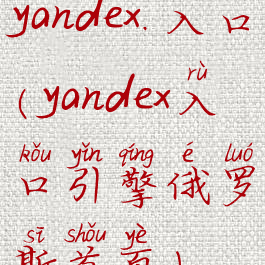 yandex.入口
rù
(yandex入
kǒu yǐn qíng é luó
口引擎俄罗
sī shǒu yè
斯首页)